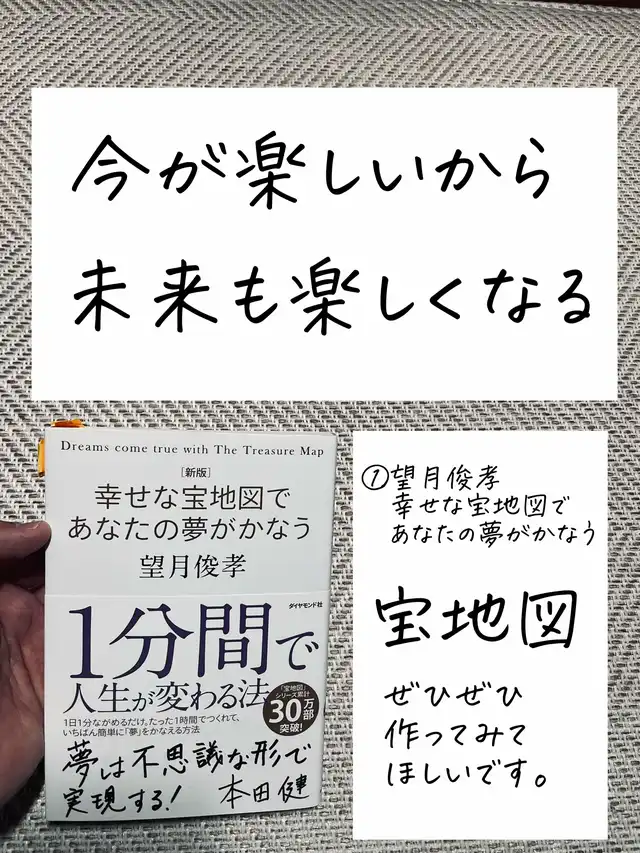 今が楽しいから
未来も楽しくなる
Dreams come true with The Treasure Map
[新版]
幸せな宝地図で
あなたの夢がかなう
望月俊孝
ダイヤモンド社
1分間で
人生が変わる法
「宝地図」
シリーズ累計
30万部
突破!
1日1分ながめるだけ。たった1時間でつくれて、
いちばん簡単に「夢」をかなえる方法
夢は不思議な形で
実現する!
本田健
①望月俊孝
幸せな宝地図で
あなたの夢がかなう
宝地図
ぜひぜひ
作ってみて
ほしいです。